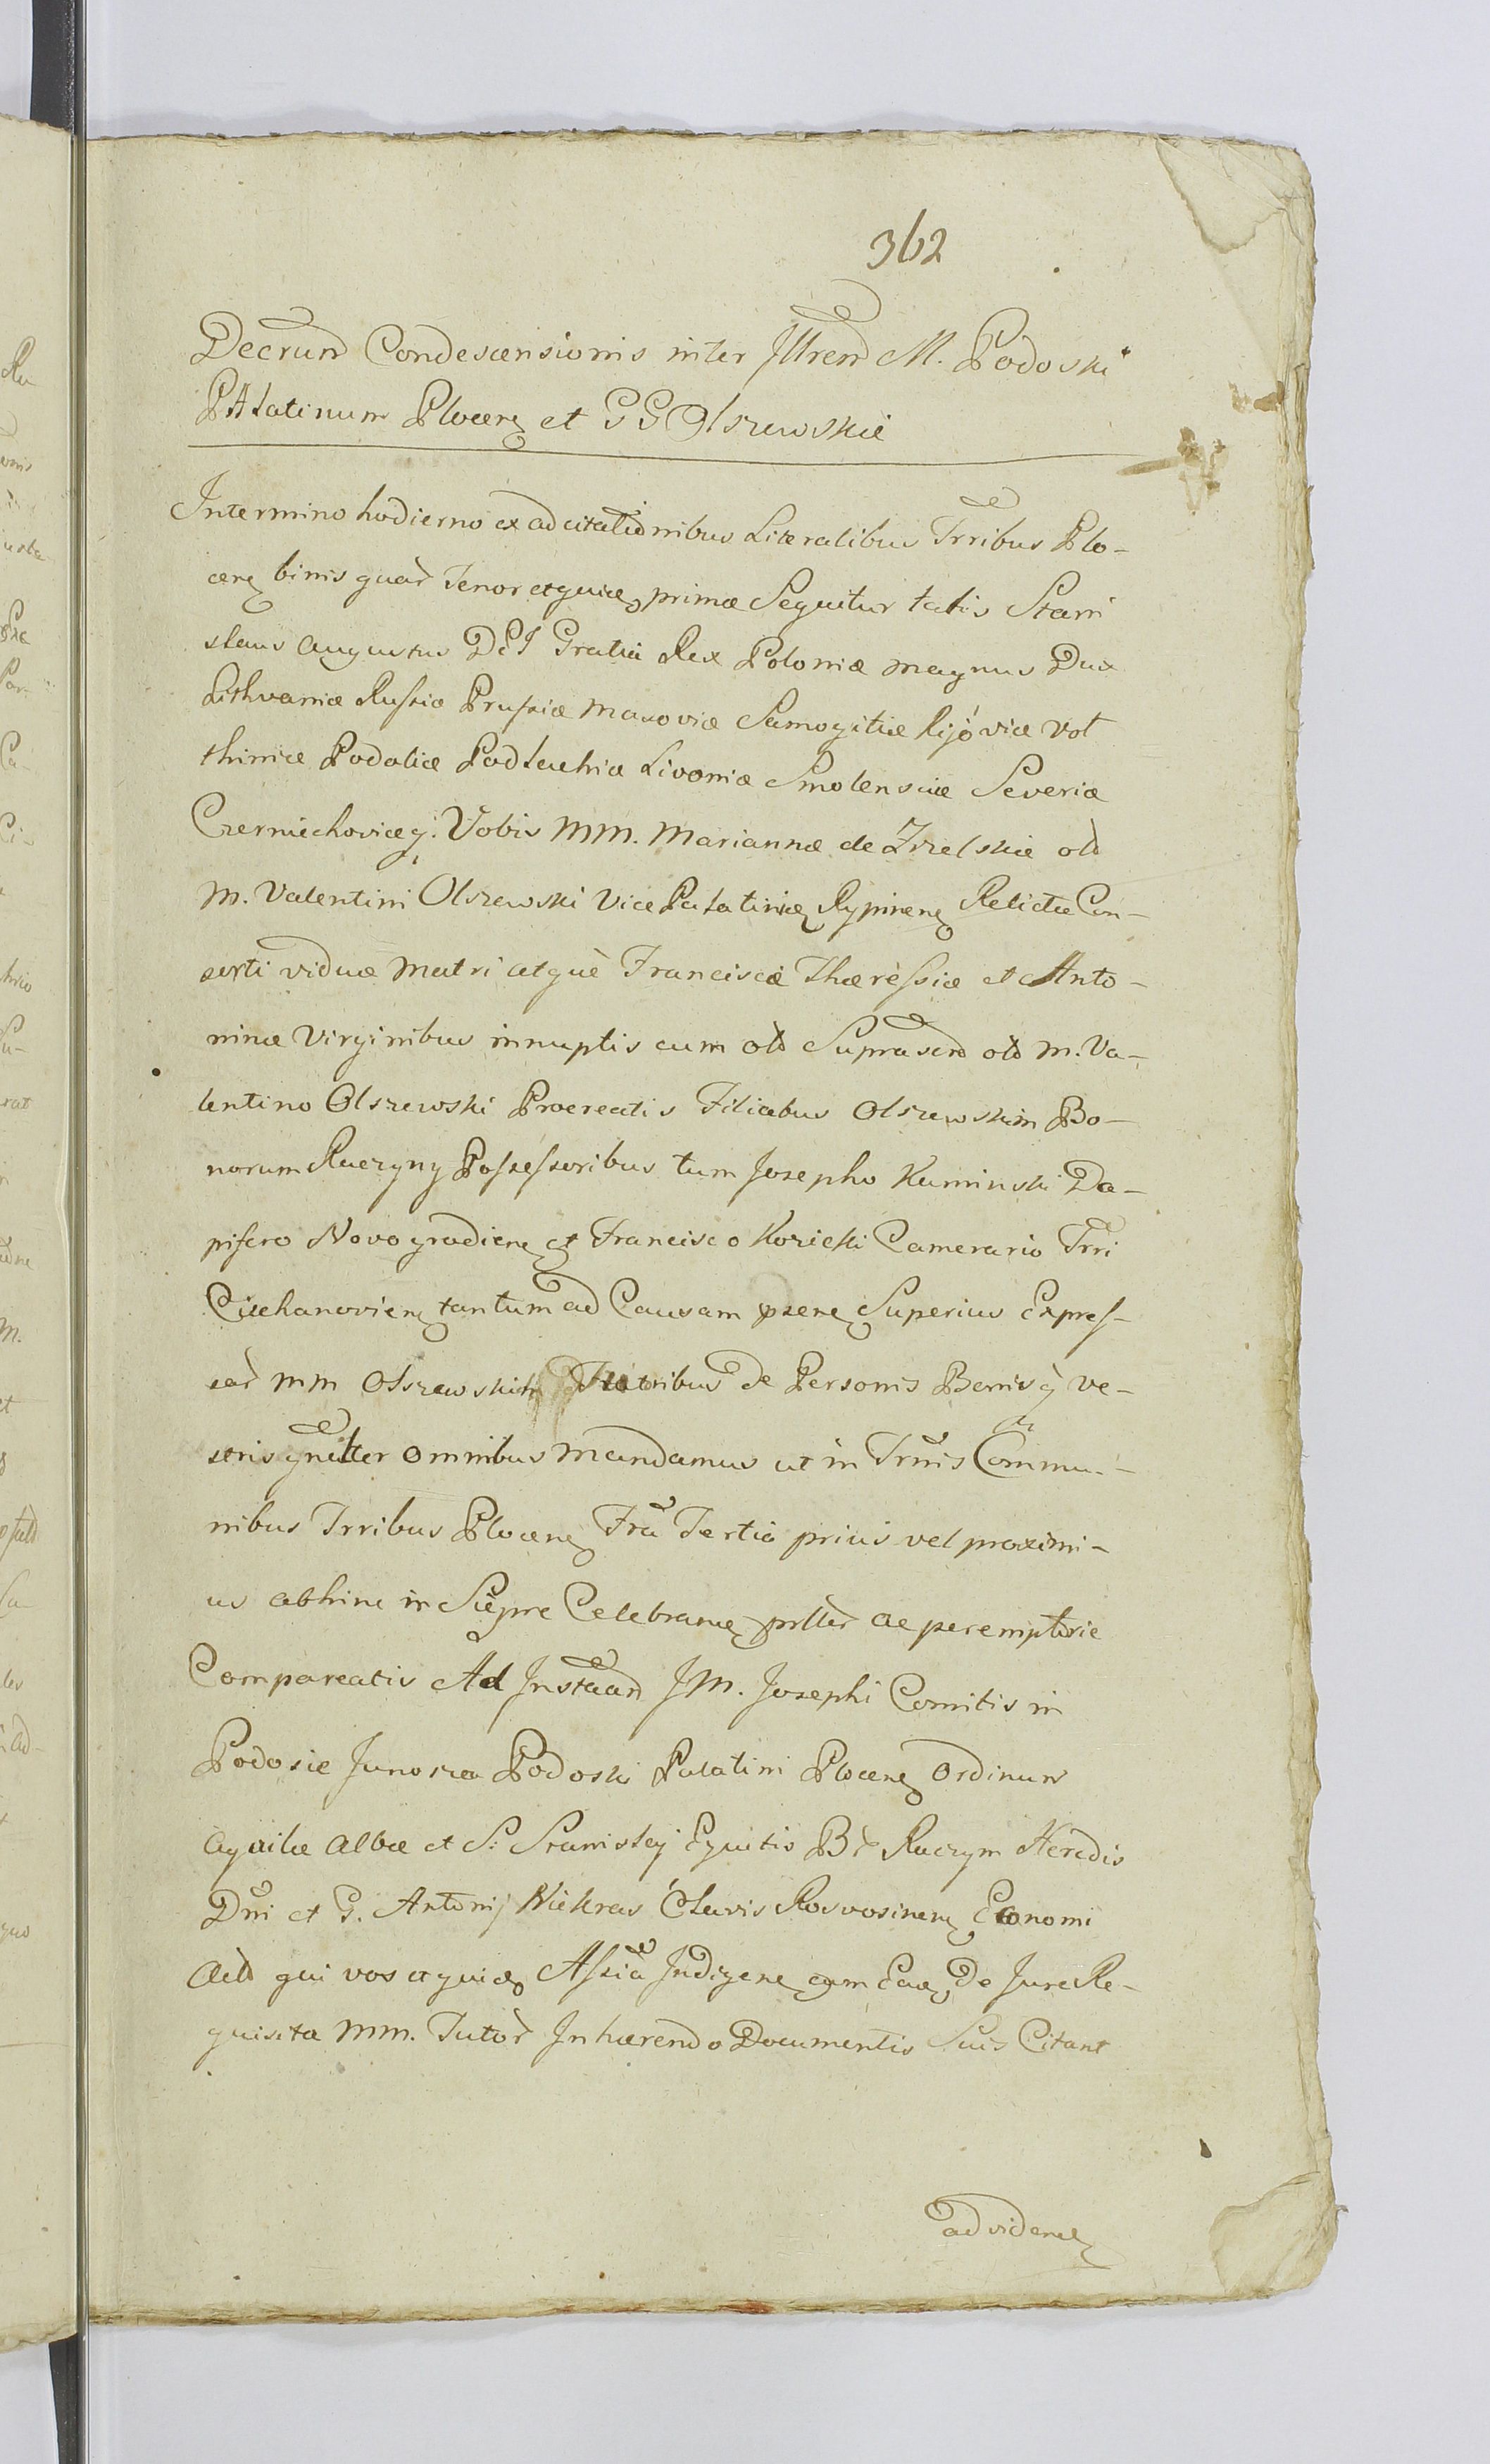 362
Decrum Condescensionis inter Jllrem M. Podoski
PAlatinum Plocen et GG Olszewskie
Intermino hodierno ex adcitationibus Literalibus Trribus Plo-
cen binis quar Tenor atquiæ primæ Sequitur talis Stani
slaus Augustus DEI Gratia Rex Poloniæ Magnus Dux
Lithvaniæ Rufsiæ Prufsiæ Masoviæ Samogitiæ Kijoviæ Vol
thiniæ Podoliæ Podlachiæ Livoniæ Smolensciæ Severiæ
Czerniechoviæq: Vobis MM. Mariannæ de Zrzelskie olo
M. Valentini Olszewski Vice Palatini Rypinen Relictæ Con-
sorti viduæ Matri atquè Franciscæ Thærèfsiæ et Anto-
ninæ Virginibus innuptis cum olo Suprascro olo M. Va-
lentino Olszewski Procreatis Filiabus Olszewskim Bo-
norum Raczyny Pofsefsoribus tum Josepho Kaminski Da-
pifero Novogrodien et Francisco Kozicki Camerario Trri
Ciechanovien tantum ad Causam psen Superius Expref-
sar MM Olszewskich Fratribus de Personis Bonisq̀ ve-
stris gnrlter omnibus Mandamus ut in Trnis Commu-
nibus Trribus Plocen Fra Tertia prius vel proximi-
us abhinc in Sieprc Celebran prltter ac peremptorie
Compareatis Ad Jnstaam JM. Josephi Comitis in
Podosie Junosza Podoski Palatini Plocen Ordinum
Aquilæ Albæ et S: Stanislaj Equitis B: Raczyn Heredis
Dni et G. Antonij Niekras Clavis Rosvosinen Economi
Acto qui vos atquiæ Afsia Jndigen cum Ea De Jure Re-
quisita MM. Tutor Jnhærendo Documentis Suis Citant
ad viden